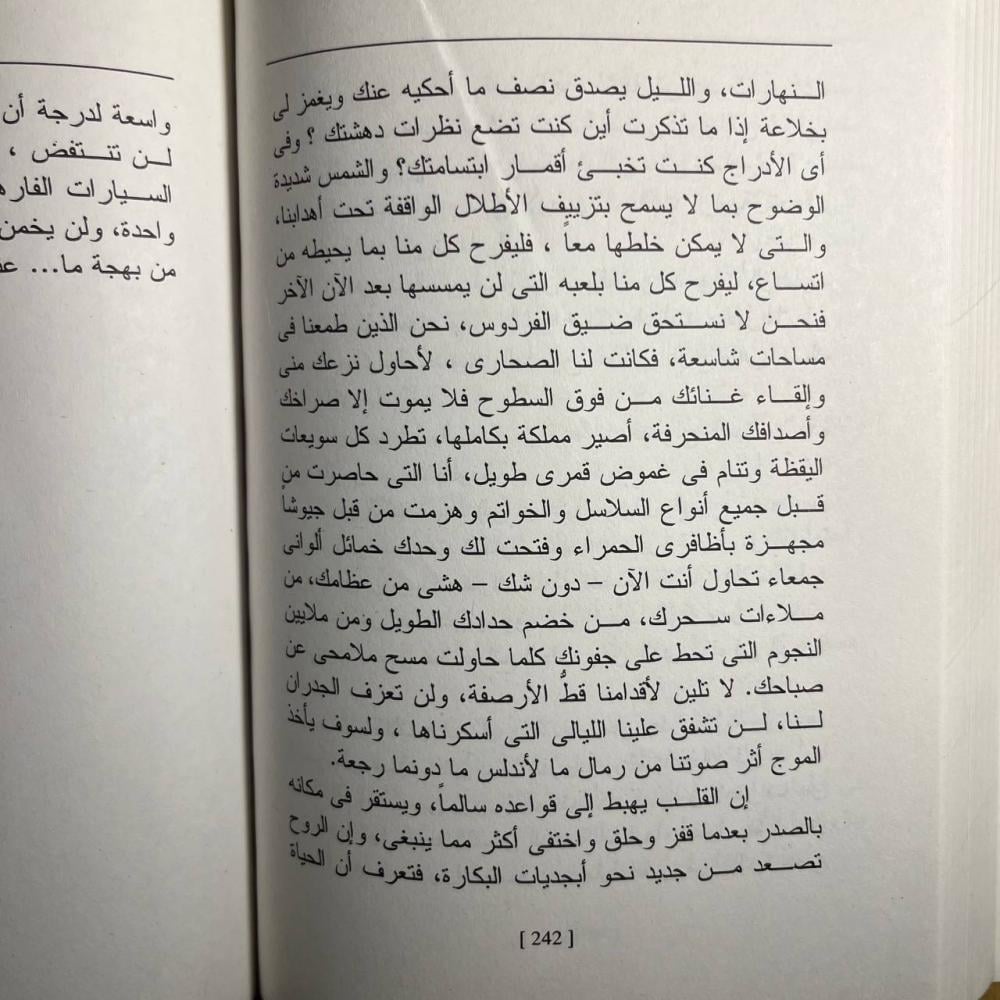 النهارات، والليل يصدق نصف ما أحكيه عنك ويغمز لى
بخلاعة إذا ما تذكرت أين كنت تضع نظرات دهشتك ؟ وفى
أى الأدراج كنت تخبئ أقمار ابتسامتك؟ والشمس شديدة
الوضوح بما لا يسمح بتزييف الأطلال الواقفة تحت أهدابنا،
والتى لا يمكن خلطها معاً ، فليفرح كل منا بما يحيطه من
اتساع، ليفرح كل منا بلعبه التى لن يمسسها بعد الآن الآخر
فنحن لا نستحق ضيق الفردوس، نحن الذين طمعنا فى
مساحات شاسعة، فكانت لنا الصحارى ، لأحاول نزعك منى
وإلقاء غنائك من فوق السطوح فلا يموت إلا صراخك
وأصدافك المنحرفة، أصير مملكة بكاملها، تطرد كل سويعات
اليقظة وتنام فى غموض قمرى طويل، أنا التى حاصرت من
قبل جميع أنواع السلاسل والخواتم وهزمت من قبل جيوشاً
مجهزة بأظافرى الحمراء وفتحت لك وحدك خمائل ألوانى
جمعاء تحاول أنت الآن – دون شك – هشى من عظامك، من
ملاءات سحرك، من خضم حدادك الطويل ومن ملايين
النجوم التى تحط على جفونك كلما حاولت مسح ملامحى عن
صباحك. لا تلين لأقدامنا قطُ الأرصفة، ولن تعزف الجدران
لنا، لن تشفق علينا الليالى التى أسكرناها ، ولسوف يأخذ
الموج أثر صوتنا من رمال ما لأندلس ما دونما رجعة.
إن القلب يهبط إلى قواعده سالماً، ويستقر فى مكانه
بالصدر بعدما قفز وحلق واختفى أكثر مما ينبغى، وإن الروح
تصعد من جديد نحو أبجديات البكارة، فتعرف أن الحياة
[ 242 ]
واسعة لدرجة أن
لن تنتفض ،
السيارات
واحدة، ولن يخمن
من بهجة ما...